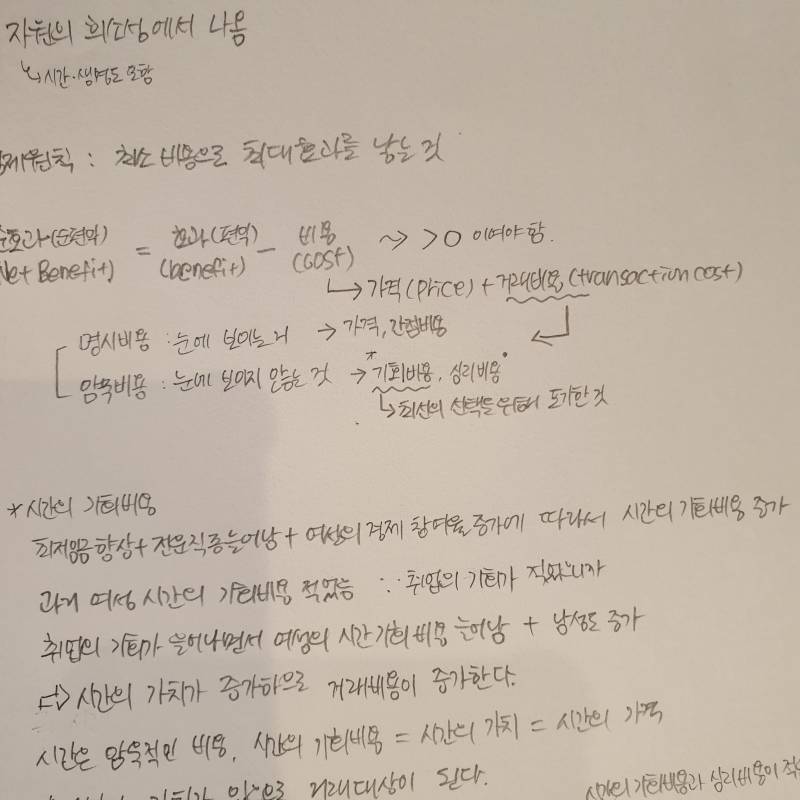 자원의 희소성에서 나옴
↳ 시간·생명도 포함
원칙 : 최소 비용으로 최대효과를 낳는 것
순효과(순편익) = 효과(편익) - 비용 ~> >0 이여야 함.
Net Benefit) (benefit) (cost)
↳ 가격(price) + 거래비용 (transaction cost)
명시비용 : 눈에 보이는거 → 가격, 간접비용
암묵비용 : 눈에 보이지 않는 것 → *기회비용, 심리비용
↳ 최선의 선택을 위해 포기한 것
* 시간의 기회비용
최저임금 향상 + 전문직종 늘어남 + 여성의 경제 참여율 증가에 따라서 시간의 기회비용 증가
과거 여성 시간의 기회비용 적었음 ∵ 취업의 기회가 적었으니까
취업의 기회가 늘어나면서 여성의 시간 기회비용 늘어남 + 남성도 증가
⇨ 시간의 가치가 증가하므로 거래비용이 증가한다.
시간은 암묵적인 비용, 시간의 기회비용 = 시간의 가치 = 시간의 가격
거래대상이 된다.
시간의 기회비용과 심리비용이